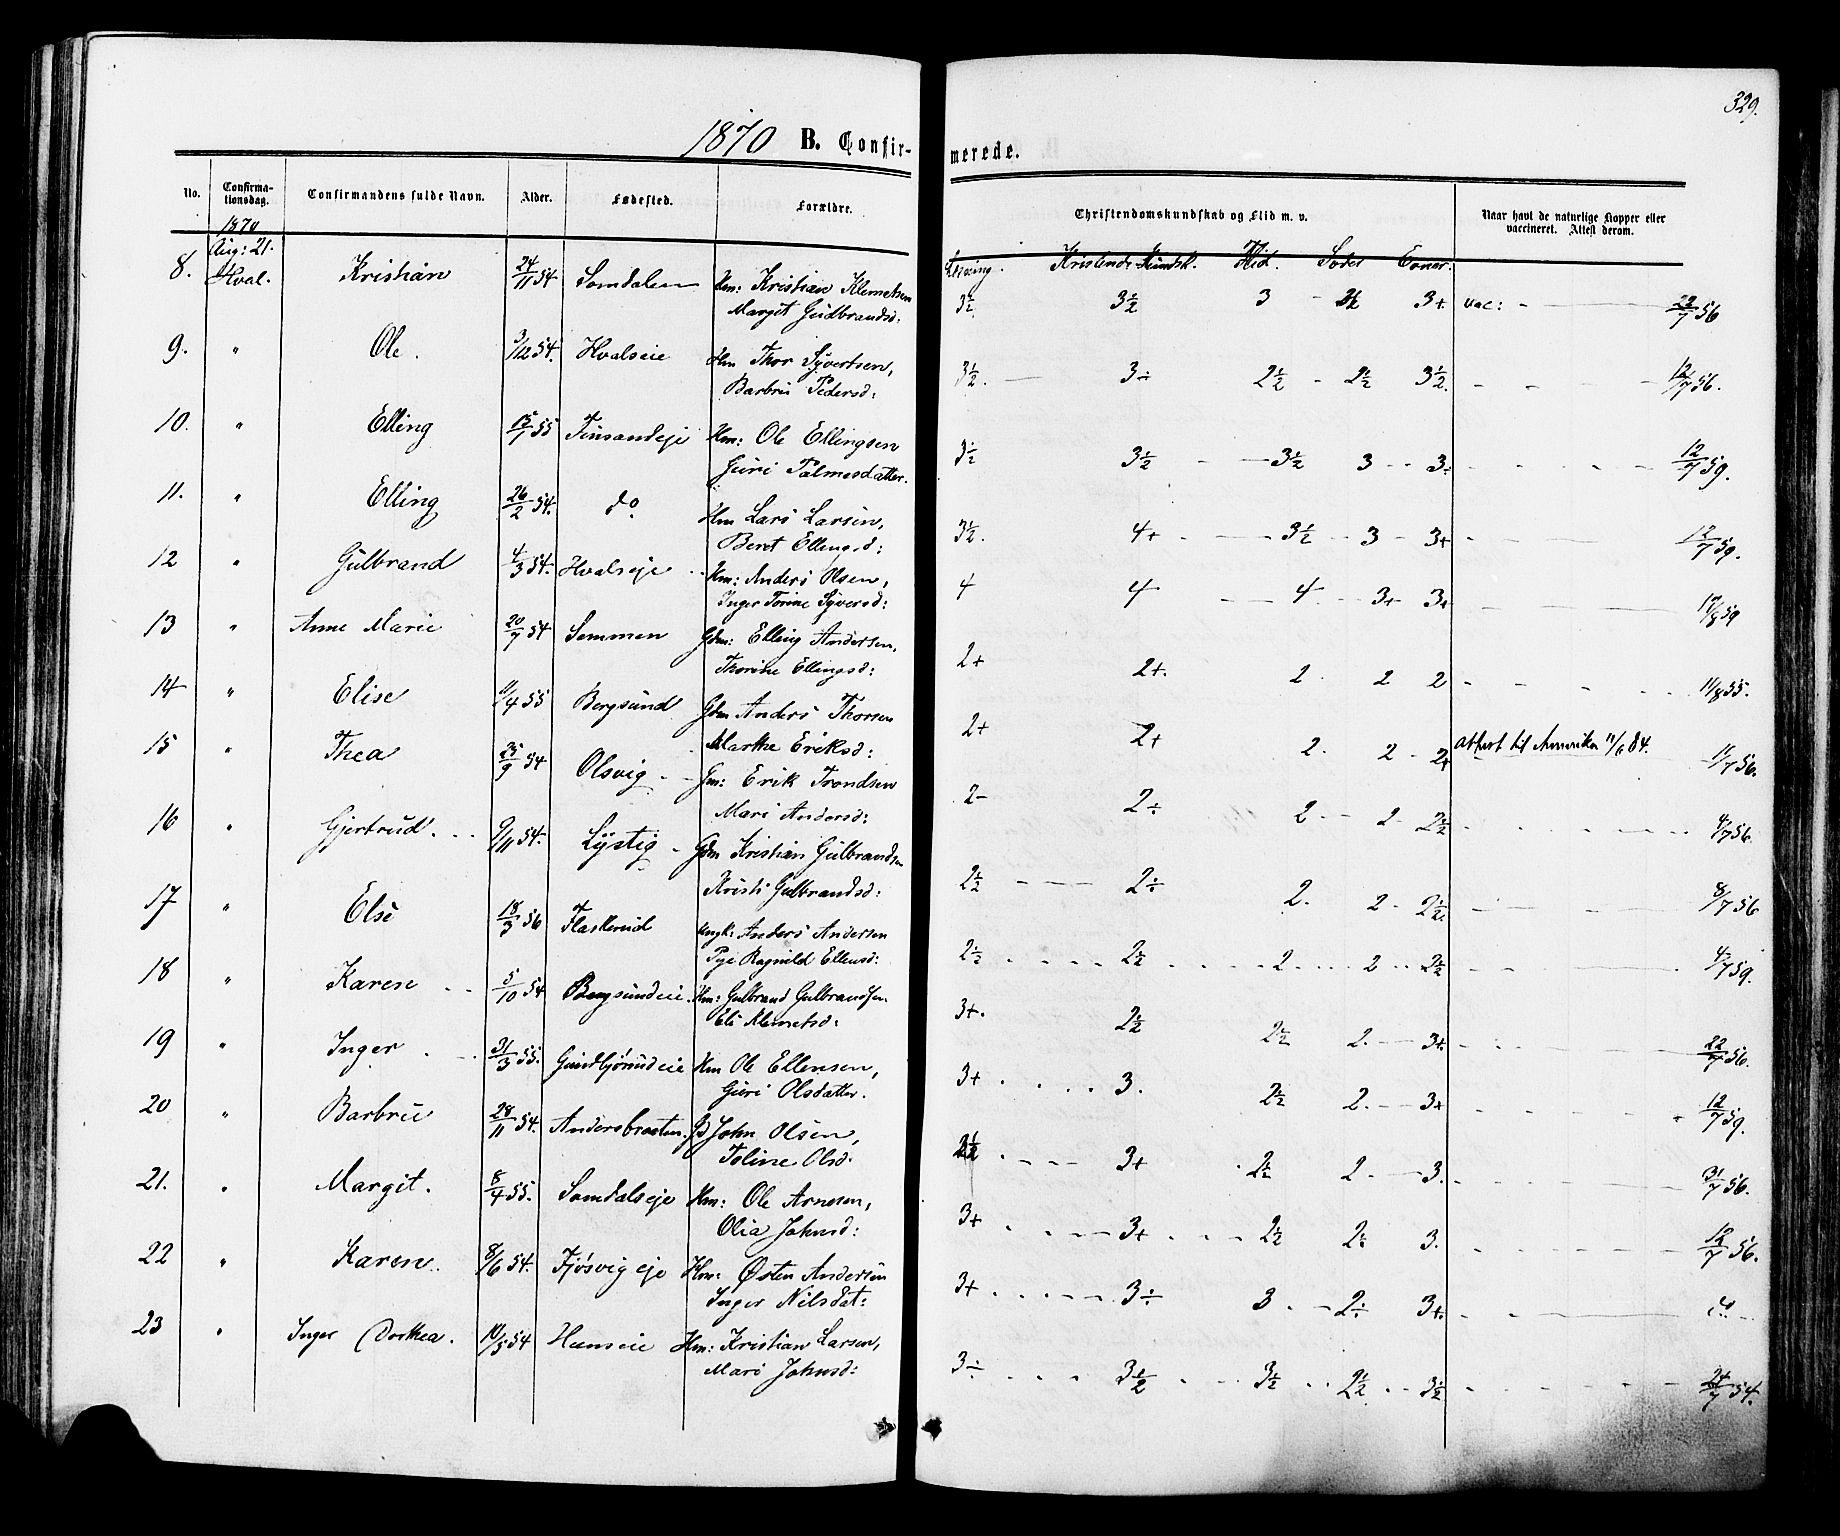 329.
1870 B. Confirmerede.
No. Confirmationsdag. Confirmandens fulde Navn. Alder. Fødested. Forældre. Christendomskundskab og Flid m. v. Naar havt de naturlige Kopper eller vaccineret. Attest derom.
1870
Aug: 21. Kristends Kundsk. Flid.
8. Hval. Kristian 24/11 54. Somdalen Hm: Kristian Klemetsen
Margit Gudbrandsd: 3½ 3½ 3 3+ vac: 22/7 56
9. " Ole. 3/12 54. Hvalseie Hm Thor Syvertsen,
Barbru Pedersd: 3½. 3÷ 2½ 2½ 3½. 12/7 56.
10. " Elling 15/7 55 Finsandeje Hm: Ole Ellingsen
Guri Palmesdatter. 3½ 3½ 3½ 3 3÷ 12/7 59.
11. " Elling 26/2 54. do Hm Lars Larsen,
Beret Ellingsd: 3½. 4+ 3½ 3 3+ 12/7 59.
12 " Gulbrand 4/3 54. Hvalseje Hm: Anders Olsen,
Inger Torine Syversd: 4 4 4 3+ 3+ 17/8 59
13 " Anne Marie 20/7 54 Semmen Gdm: Elling Andersen,
Thorine Ellingsd: 2+ 2+. 2. 2 2 11/8 55.
14 " Elise 4 55 Bergsund Gdm Anders Thorsen
Marthe Eriksd: 2+ 2+ 2. 2 2+ attest til Amerika 84. 11/7 56.
15 " Thea 25/9 54 Olsvig Gm: Erik Trondsen
Mari Andersd: 2- 2÷ 2 2 2½ 4/7 56.
16 " Gjertrud. 9/11 54. Lystig Gdm Kristian Gulbrandsen
Kristi Gulbrandsd: 2½ 2÷ 2. 2 2½. 8/7 56
17 " Else 18/3 56 Flaskerud Ungk: Anders Andersen
Pige Ragnild Ellensd: 2½ 2½ 2 2 2½ 4/7 59.
18 " Karen 5/10 54 Bergsundeie Hm: Gulbrand Gulbrandsen.
Eli Klemetsd: 3+. 2½ 2½ 2. 3+. 22/7 56.
19 " Inger 31/3 55. Gundbjørudeie Hm Ole Ellensen,
Guri Olsdatter. 3+ 3. 2½ 2. 3+ 12/7 59.
20 " Barbru 28/11 54. Andersbraaten. John Olsen,
Toline Olsd. 3+ 2½ 2. 3. 31/7 56.
21. " Margit. 8/4 55. Somdalseje Hm: Ole Arnesen,
Olia Johnsd: 3+ 3+ 2½ 2÷ 3. 12/7 56.
22 " Karen. 8/6 54. Fjøsvigeje Hm: Østen Andersen
Inger Nilsdat: 3+ 3÷ 3. 2÷ 3+.
23 " Inger Dorthea. 10/5 54 Hunseie Hm: Kristian Larsen,
Mari Johnsd: 3÷ 3½ 3½ 2½ 3½ 24/7 54.